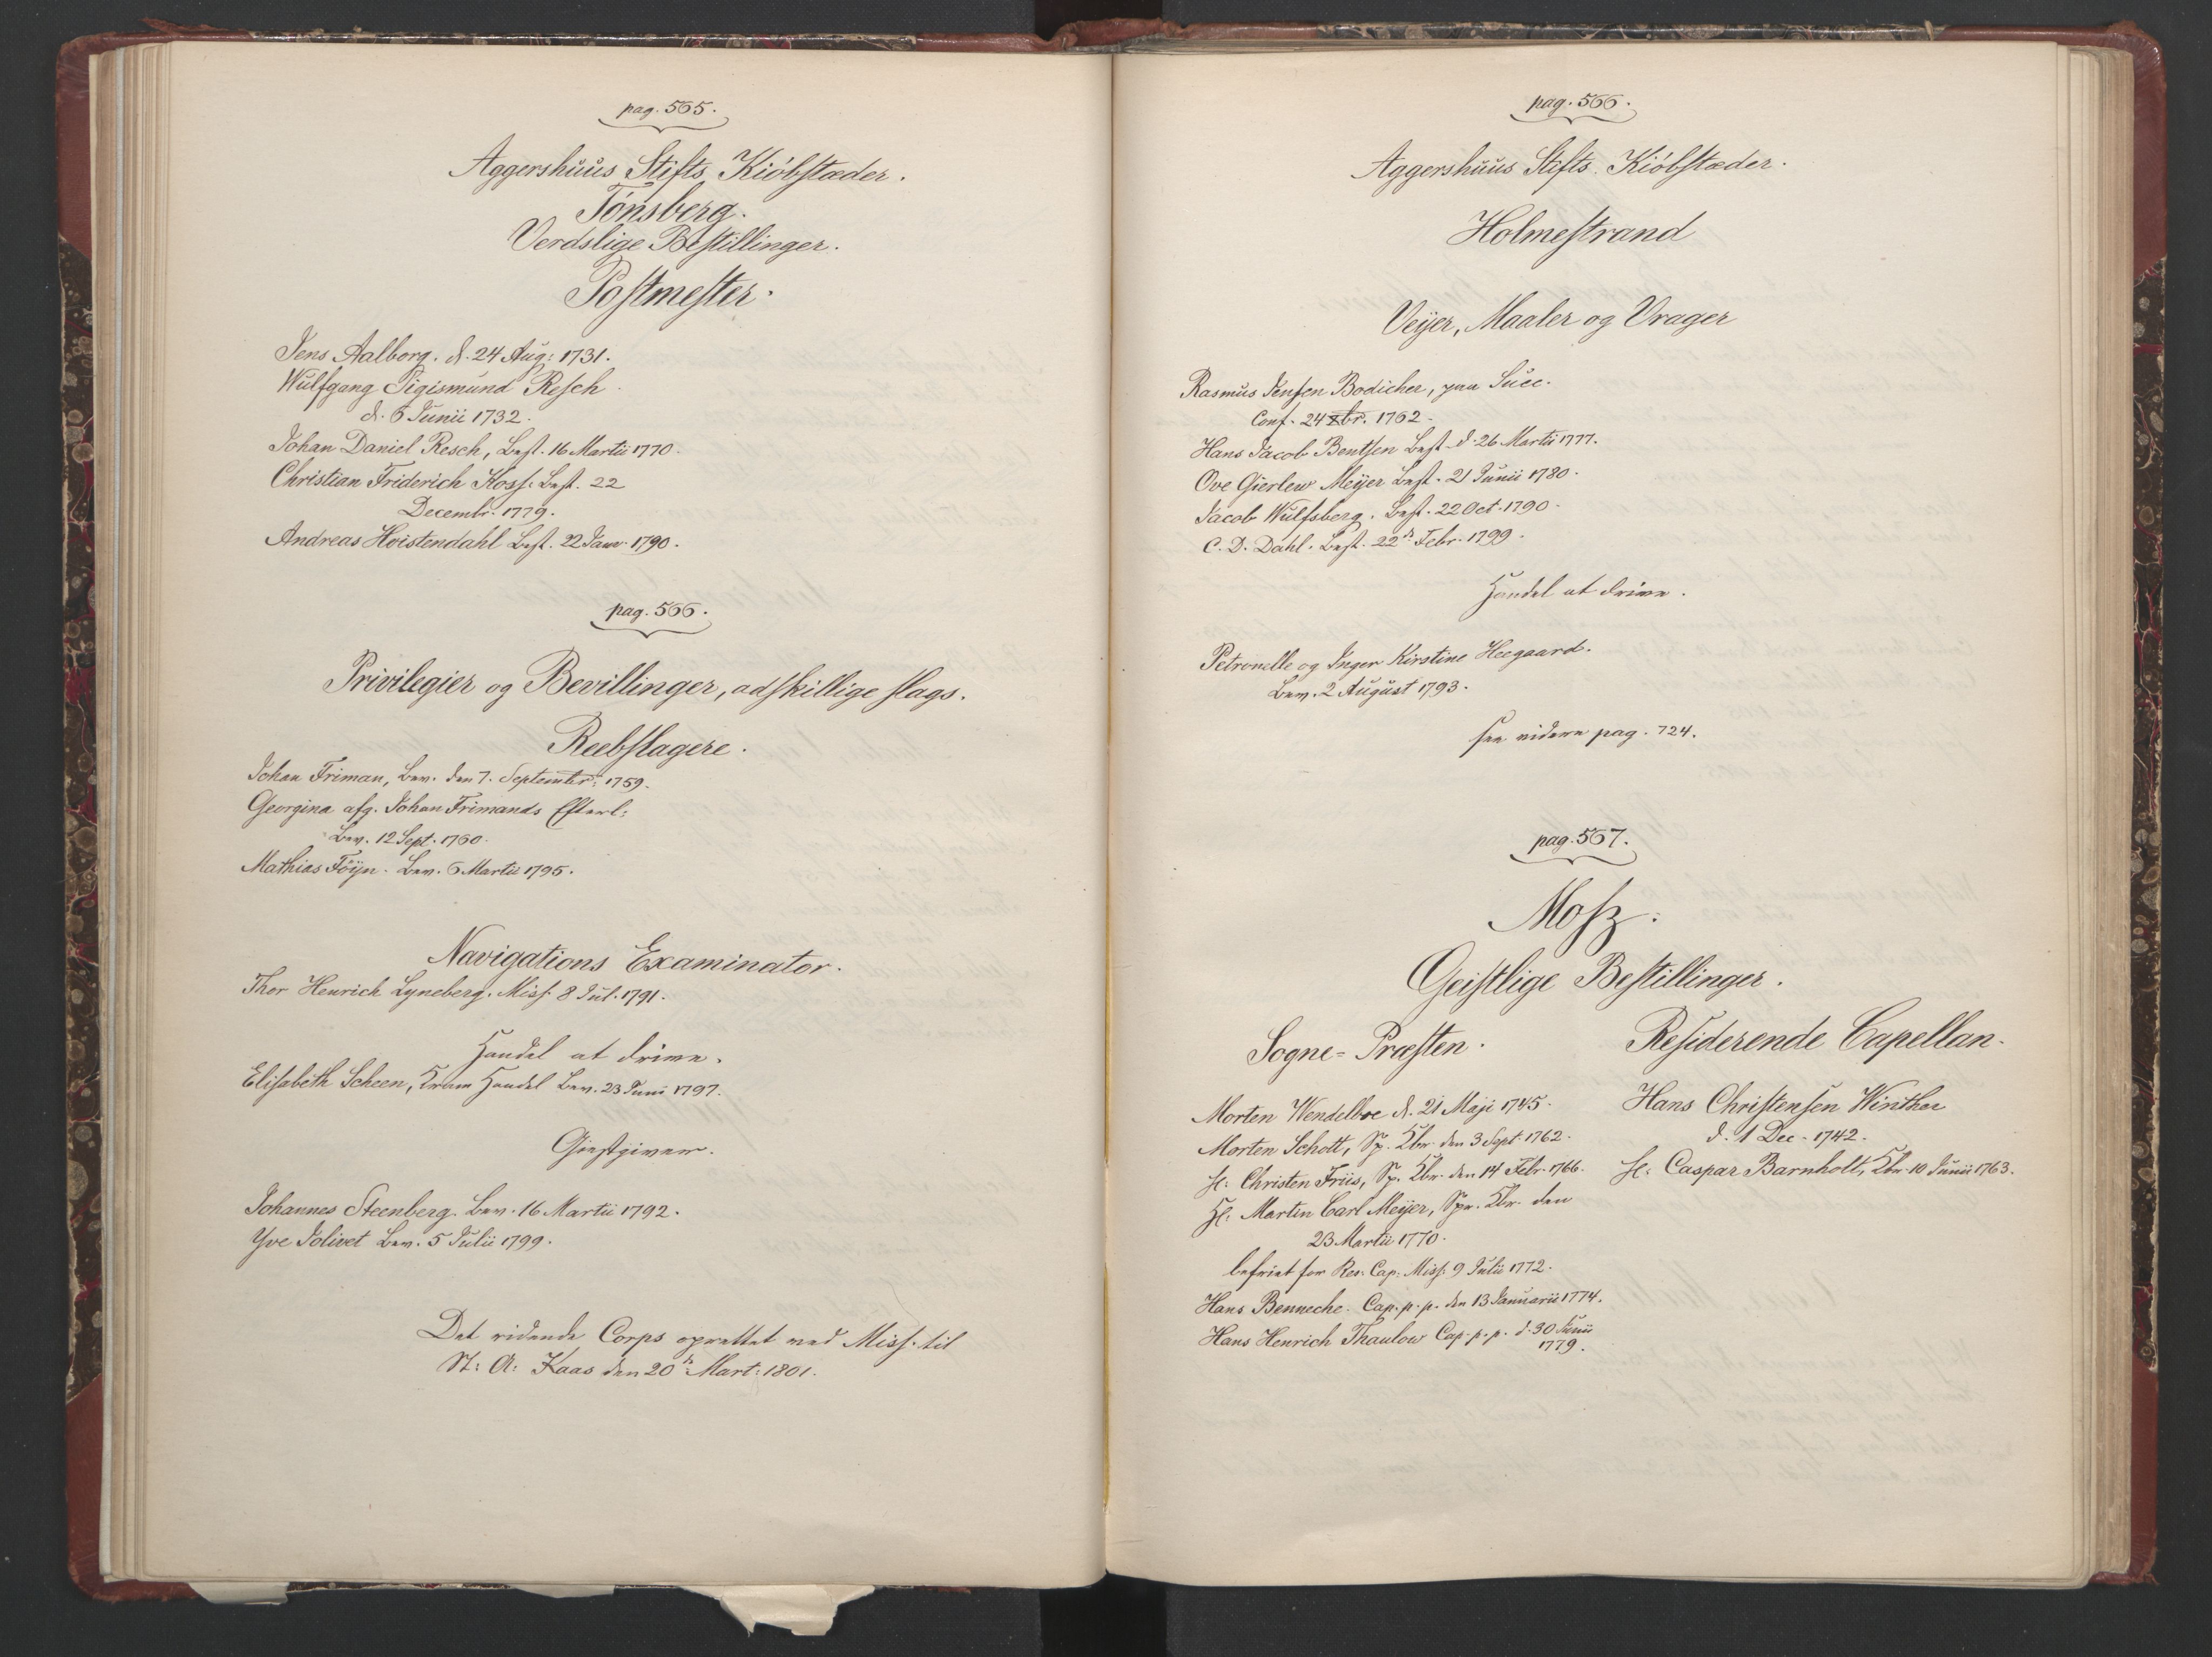 pag. 565.
Aggershuus Stifts Kiöbstæder.
Tönsberg.
Verdslige Bestillinger.
Postmester.
Jens Aalborg. d. 24 Aug: 1731.
Wulfgang Sigismund Resch
d. 6 Junii 1732.
Johan Daniel Resch, Best. 16 Martii 1770.
Christian Friderich Hoss. Best. 22
Decembr. 1779.
Andreas Hvistendahl Best. 22 Janv. 1790.
pag. 566.
Privilegier og Bevillinger, adskillige slags.
Reebslagere.
Johan Friman, Bev. den 7. Septembr: 1759.
Georgina afg. Johan Frimands Efterl:
Bev. 12 Sept. 1760.
Mathias Föyn. Bev. 6 Martii 1795.
Navigations Examinator.
Thor Henrich Lyneberg. Miss. 8 Jul. 1791.
Handel at drive.
Elisabeth Scheen, Kram Handel Bev. 23 Junii 1797.
Giestgiver.
Johannes Steenberg. Bev. 16 Martii 1792.
Yve Jolivet Bev. 5 Julii 1799.
Det ridende Corps oprettet ved Miss. til
St: A: Kaas den 20de Mart: 1801.
pag. 566.
Aggershuus Stifts Kiöbstæder.
Holmestrand
Veijer, Maaler og Vrager
Rasmus Jensen Bodicher, paa Succ.
Conf. 24 Xbr. 1762.
Hans Jacob Bentsen Best. d. 26 Martii 1777.
Ove Gierlew Meijer Best. 21 Junii 1780.
Jacob Wulfsberg. Best. 22 Oct. 1790.
C. D. Dahl. Best. 22de Febr. 1799.
Handel at drive.
Petronelle og Inger Kirstine Heegaard.
Bev. 2 August 1793.
see videre pag. 724.
pag. 567.
Mosz.
Geistlige Bestillinger.
Sogne-Præsten.
Morten Wendelboe d. 21 Maji 1745.
Morten Schott, Sp. Kbr. den 3 Sept. 1762.
H: Christen Friis, Sp. Kbr. den 14 Febr. 1766.
H: Martin Carl Meijer, Spr. Kbr. den
23 Martii 1770.
befriet for Res: Cap: Miss: 9 Julii 1772.
Hans Benneche. Cap. p. p. den 13 Januarii 1774.
Hans Henrich Thaulow Cap. p. p. d. 30 Junii
1779.
Residerende Capellan.
Hans Christensen Winther
d. 1 Dec. 1742.
H: Caspar Barnholt, Kbr. 10 Junii 1763.